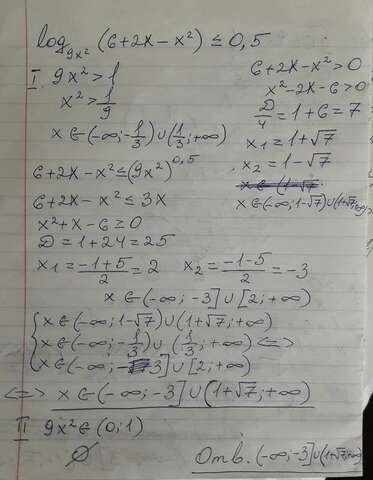 log₉ₓ² (6+2x-x²) ≤ 0,5
I 9x² > 1
x² > 1/9
x ∈ (-∞; -1/3) ∪ (1/3; +∞)
6+2x-x² > 0
x²-2x-6 > 0
D/4 = 1+6 = 7
x₁ = 1+√7
x₂ = 1-√7
x ∈ (-∞; 1-√7) ∪ (1+√7; +∞)
6+2x-x² ≤ (9x²)^0,5
6+2x-x² ≤ 3x
x²+x-6 ≥ 0
D = 1+24 = 25
x₁ = (-1+5)/2 = 2 x₂ = (-1-5)/2 = -3
x ∈ (-∞; -3] ∪ [2; +∞)
{ x ∈ (-∞; 1-√7) ∪ (1+√7; +∞)
x ∈ (-∞; -1/3) ∪ (1/3; +∞) <=>
x ∈ (-∞; -3] ∪ [2; +∞)
<=> x ∈ (-∞; -3] ∪ (1+√7; +∞)
II 9x² ∈ (0; 1)
∅
Отв. (-∞; -3] ∪ (1+√7; +∞)